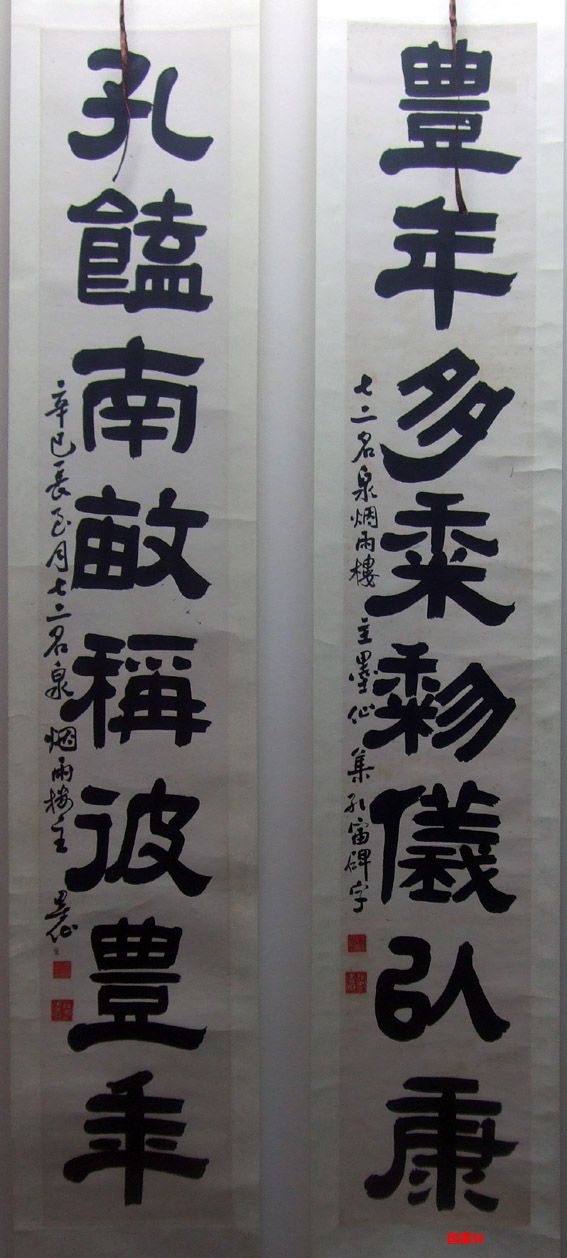 豊年多黍黎儀以康
七二名泉烟雨樓主墨仙集孔宙碑字
孔饁南畝稱彼豊年
辛巳長至月七二名泉烟雨楼主墨仙